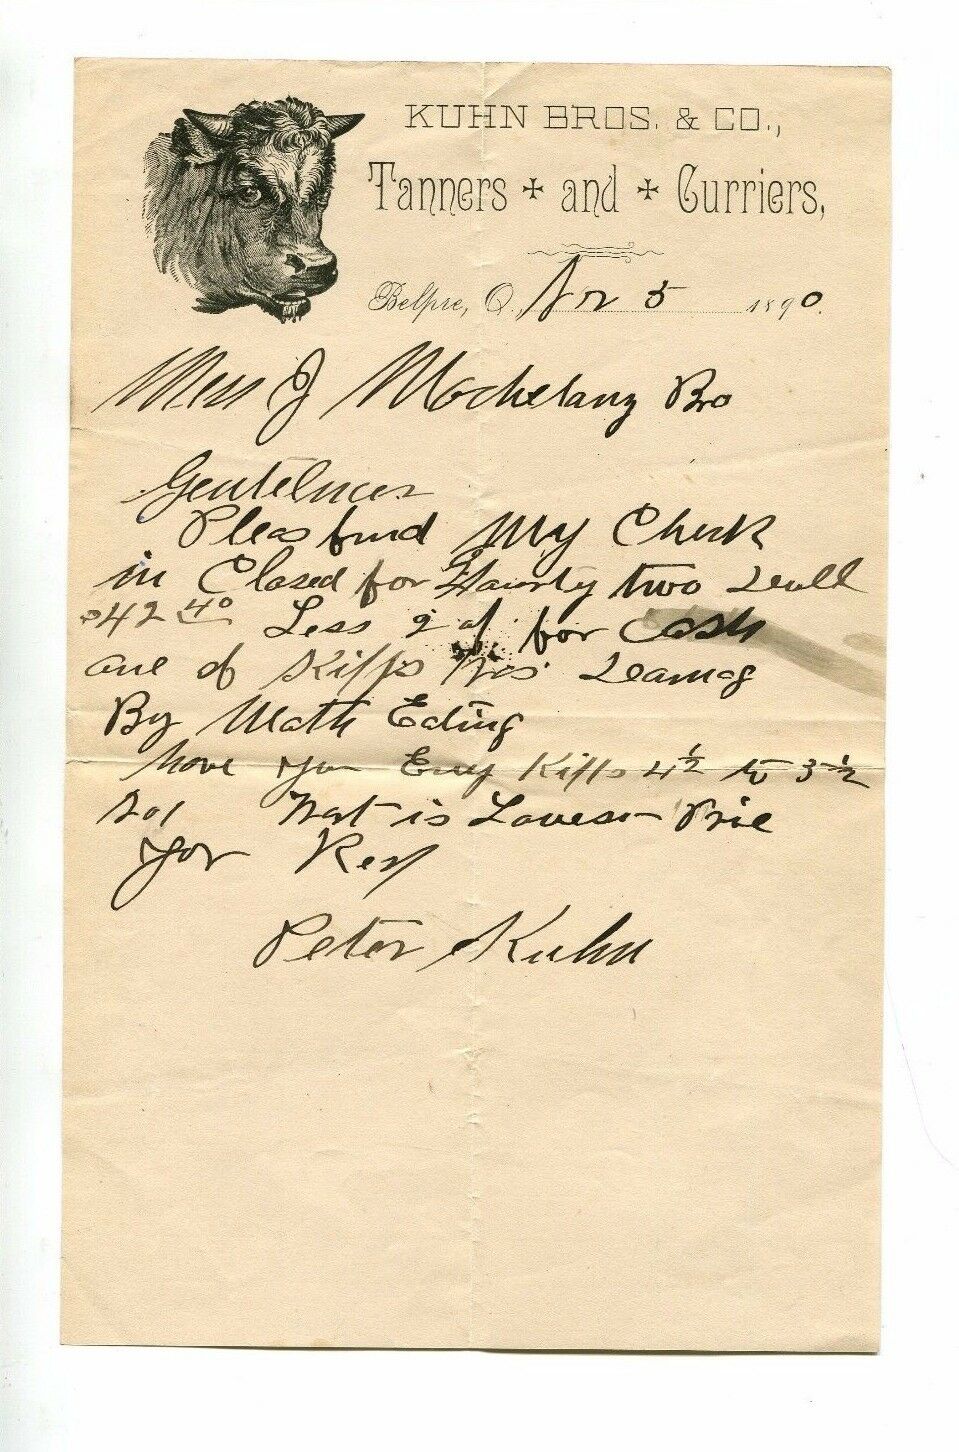 KUHN BROS. & CO.,
Tanners and Curriers,
Belpre, O., Nov 5 1890.
Mess J Bro
Gentelmen
Pleas find My Check
in Closed for two
$42 40 Less for Cash
one of Kipps
By Moth Eating
have you Eny Kipps 4½ to 3½
Wat is Lovest Price
Yor Res
Peter Kuhn